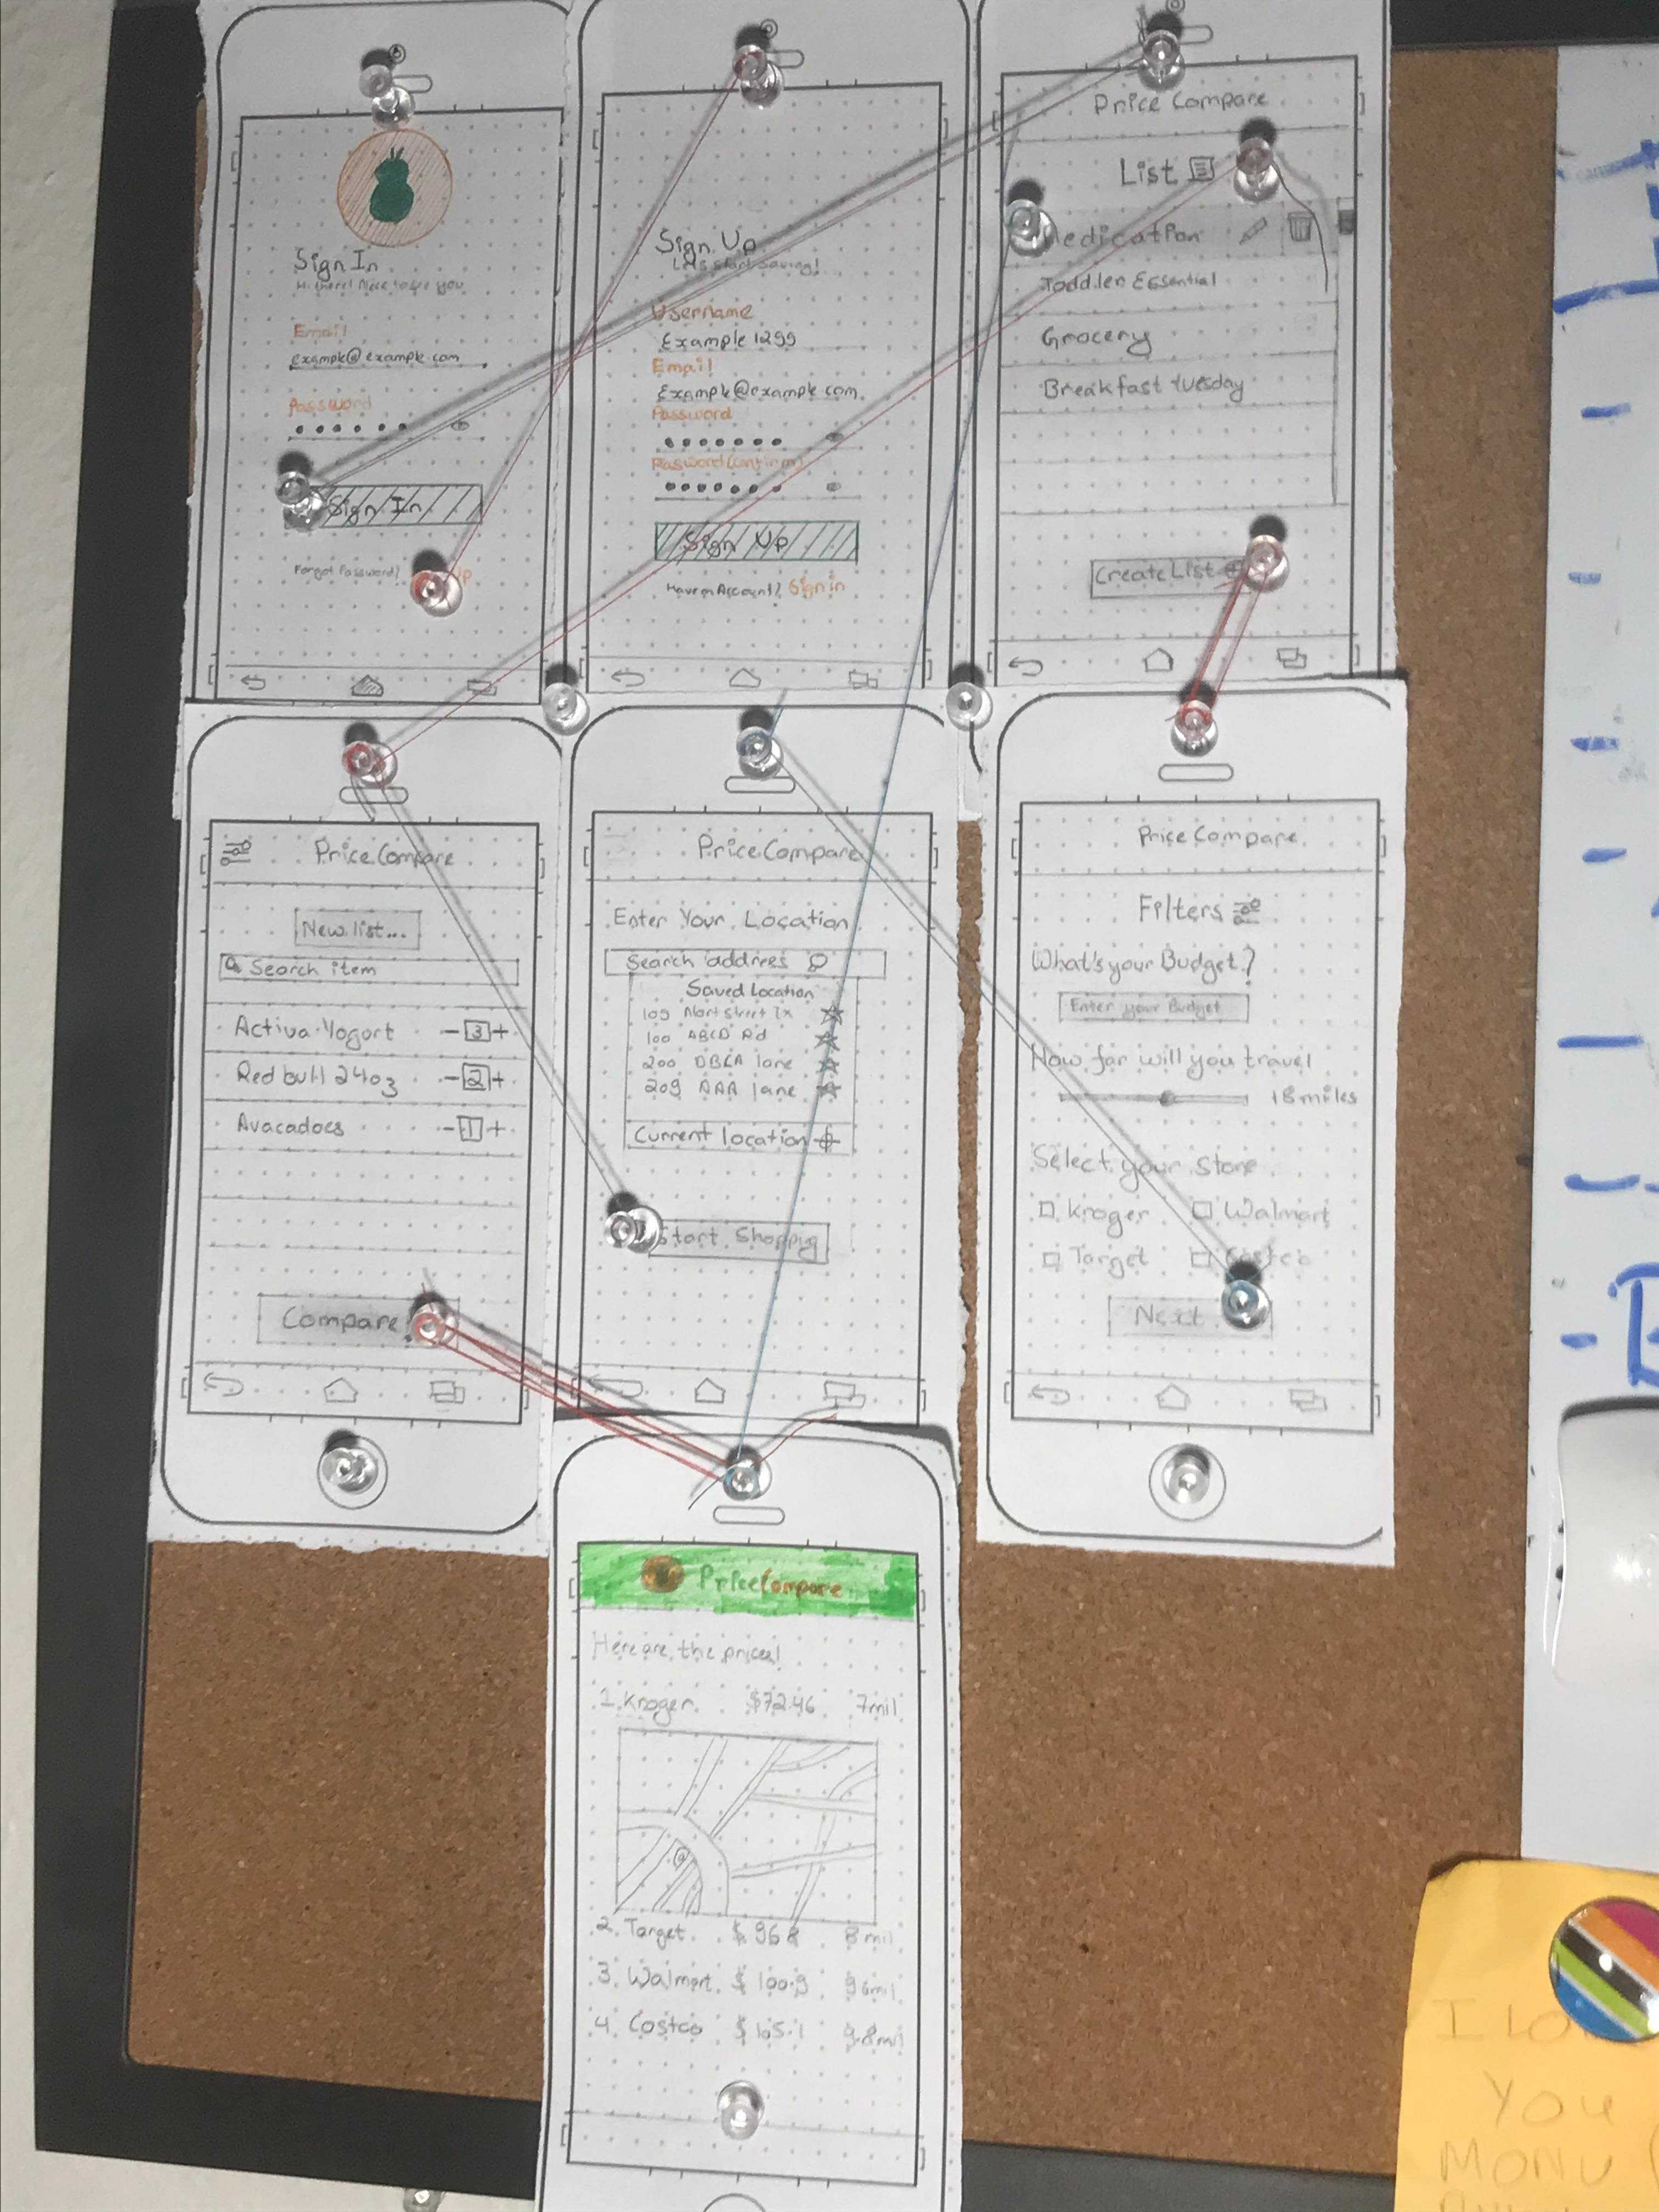 Sign In
Hi there! Nice to see you
Email
example@example.com
Password
Sign In
Forgot Password?
Sign Up
Lets start Saving!
Username
Example1299
Email
Example@example.com
Password
Password(confirm)
Sign Up
Have an Account? Sign in
Price Compare
List
Medication
Toddler Essential
Grocery
Breakfast Tuesday
Create List
Price Compare
New list...
Search item
Activa Yogort
- 3 +
Red bull 24oz
- 2 +
Avacadoes
- 1 +
Compare!
Price Compare
Enter Your Location
Search address
Saved Location
100 ABCD Rd
200 DBCA lane
209 AAA lane
Current location
Start Shopping
Price Compare
Filters
What's your Budget?
Enter your Budget
How far will you travel
18 miles
Select your Store
Kroger
Walmart
Target
Costco
Next
PriceCompare
Here are the prices!
1. Kroger $72.46 7mil
2. Target $ 8 mil
3. Walmart $ 100.9
4. Costco $ 9.8mil
YOU
MONU